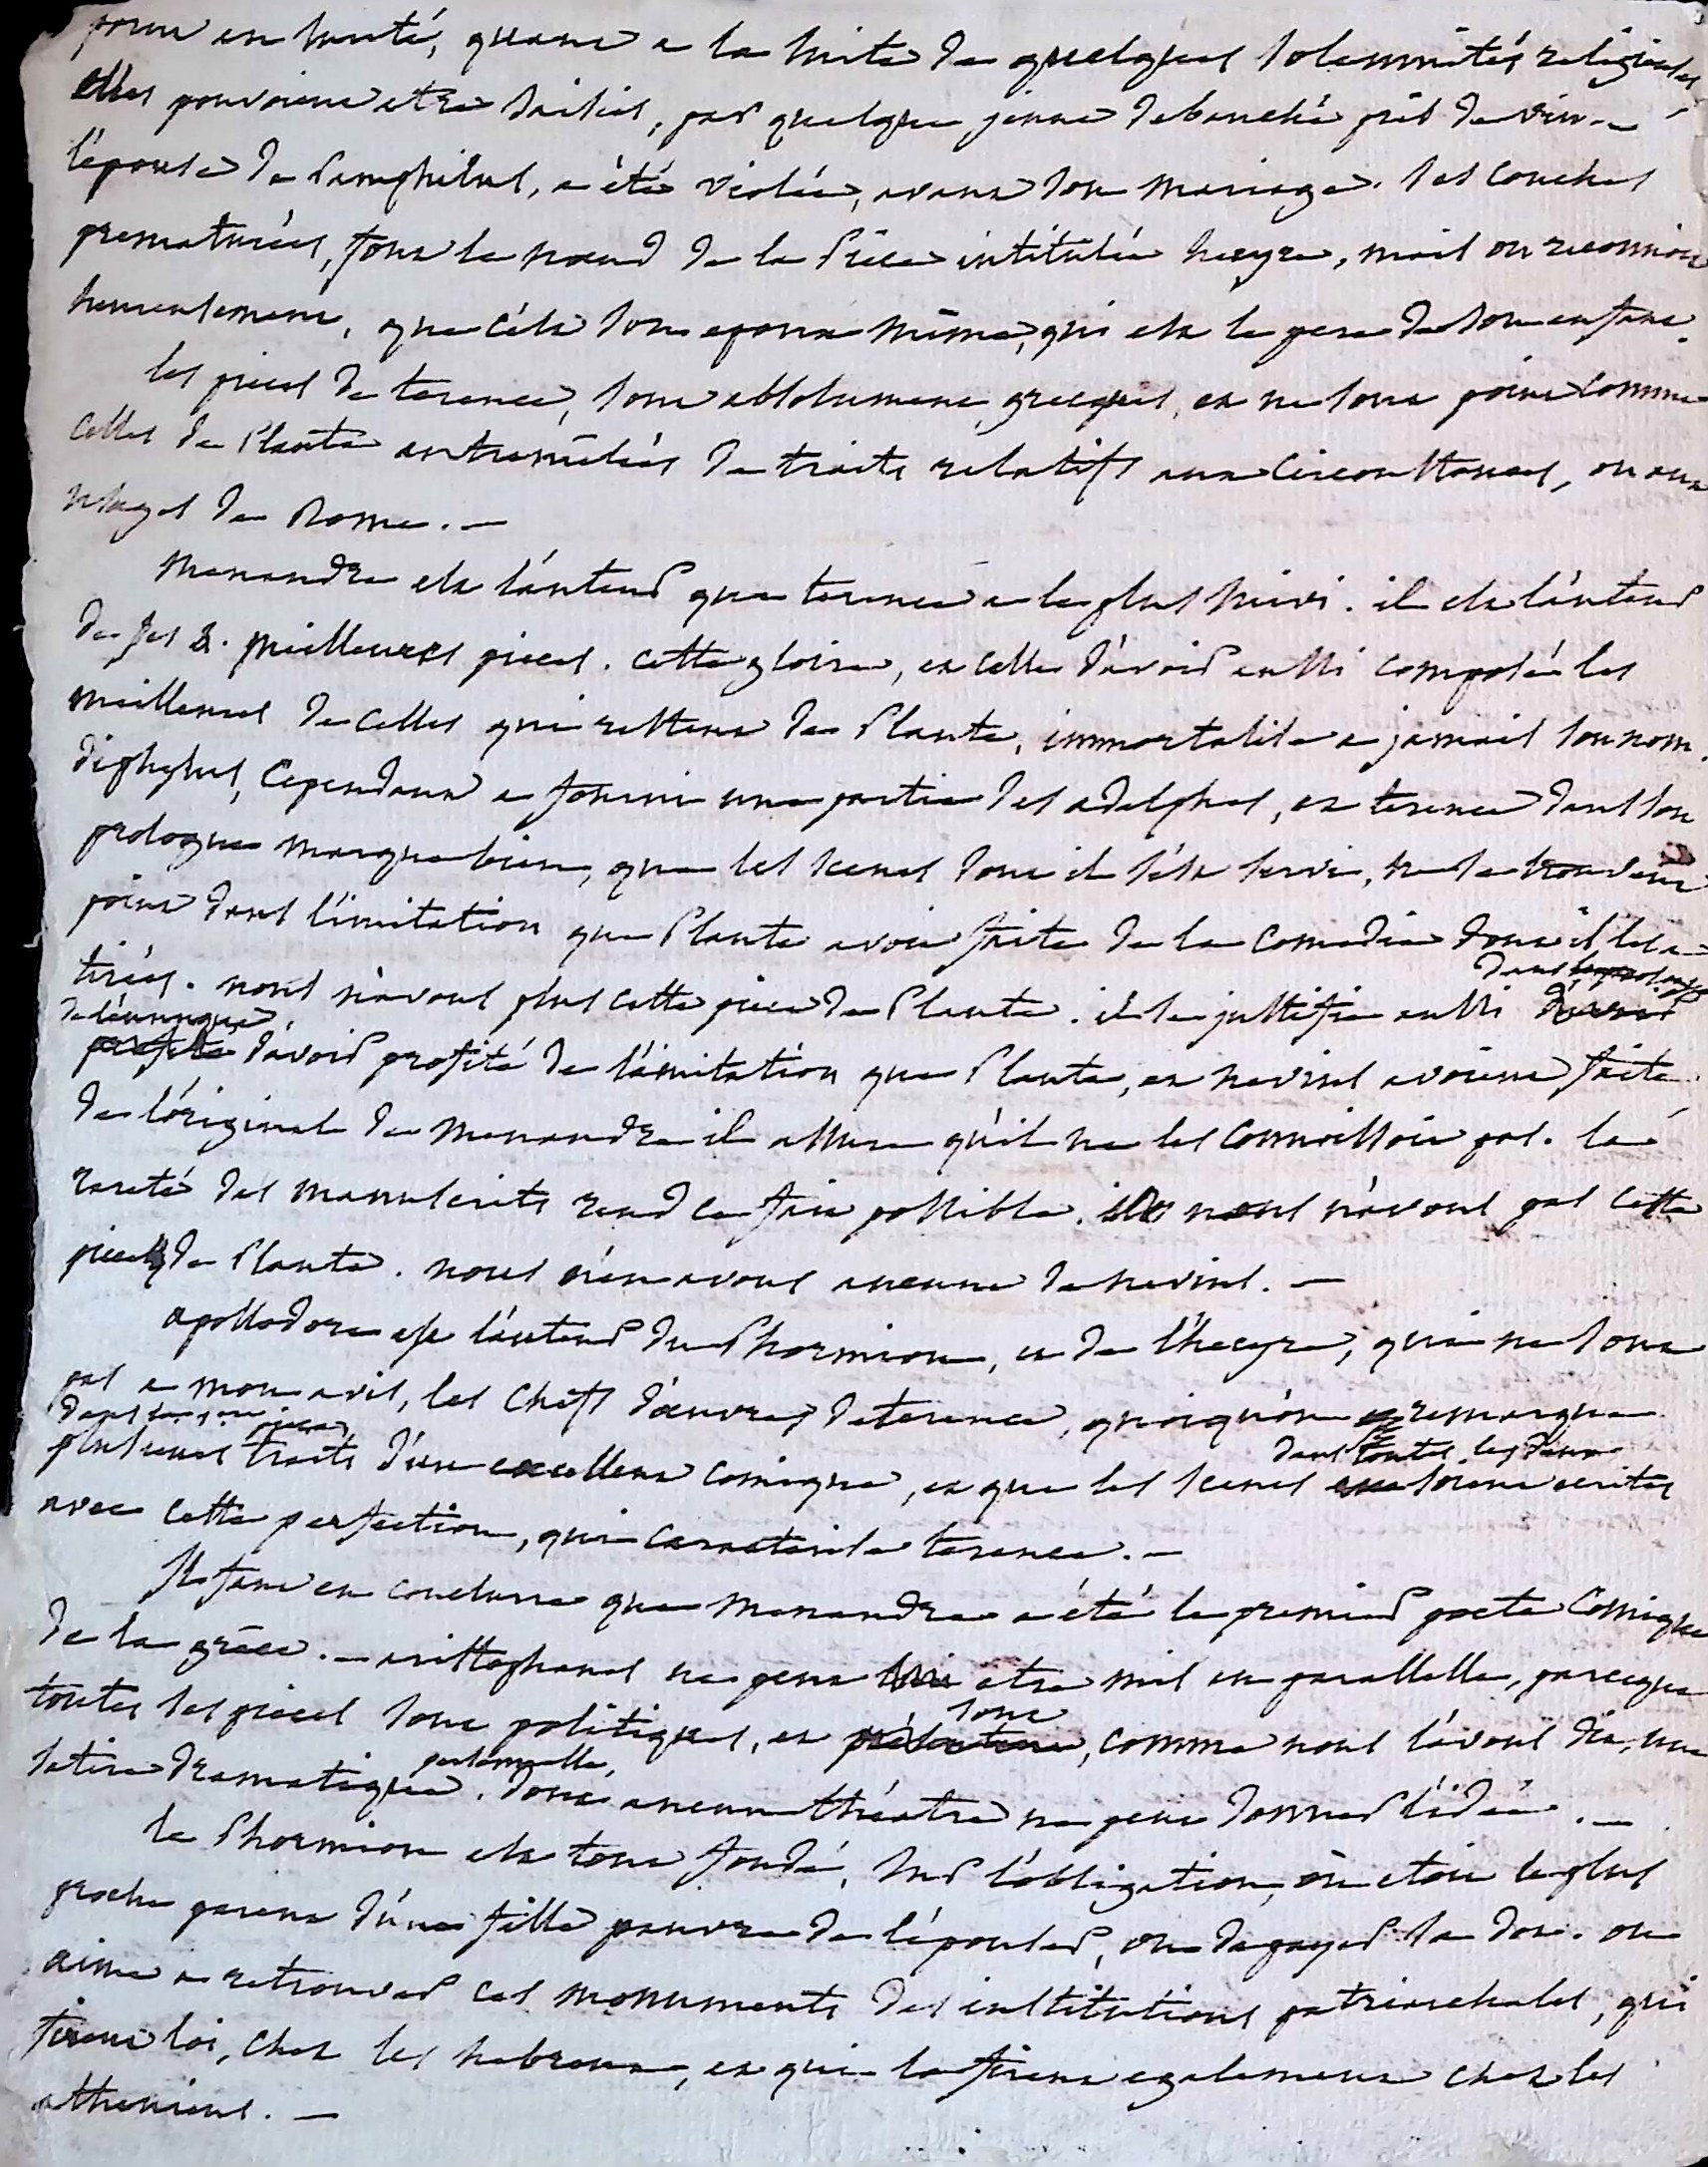 porus en sureté, quand a la suite de quelques solemnités religieuses,
elles pouvoient etre saisies, par quelque jeune debauché pris de vin. –
l'épouse de Pamphilus, a été violée, avant son mariage. ses couches
prematurées, font le nœud de la Pièce intitulée hecyre, mais on reconnoit
heureusement, que c'est son epoux même, qui est le pere de son enfant.
les pieces de terence, sont absolument grecques, et ne sont point comme
celles de Plaute entremêlées de traits relatifs aux circonstances, ou aux
usages de Rome. –
Menandre est l'auteur que terence a le plus suivi. il est l'auteur
de ses meilleures pieces. cette gloire, et celle d'avoir aussi composé les
meilleures de celles qui restent de Plaute, immortalise a jamais son nom.
diphylus, cependant a fourni une partie des adelphes, et terence dans son
prologue marque bien, que les scenes dont il s'est servi, ne se trouvent
point dans l'imitation que Plaute avoit faite de la comedie dont il les a
tirées. nous n'avons plus cette piece de Plaute. il se justifie aussi dans le prologue
de l'eunuque, d'avoir profité de l'imitation que Plaute, et nevius avoient faite
de l'original de Menandre il assure qu'il ne les connoissoit pas. la
rareté des manuscrits rend ce fait possible. nous n'avons pas cette
piece de Plaute. nous n'en avons aucune de nevius. –
apollodore est l'auteur du Phormion, et de l'hecyre, qui ne sont
pas a mon avis, les chefs d'œuvres de terence, quoiqu'on remarque
dans pieces
plusieurs traits d'un excellent comique, et que les scenes dans toutes les deux soient ecrites
avec cette perfection, qui caracterise terence. –
Il faut en conclure que Menandre a été le premier poete comique
de la grèce. – aristophanes ne peut lui etre mis en parallelle, parceque
toutes ses pieces sont politiques, et sont, comme nous l'avons dit, une
satire dramatique personnelle, dont aucun théatre ne peut donner l'idée. –
le Phormion est tout fondé, sur l'obligation, où etoit le plus
proche parent d'une fille pauvre de l'épouser, ou de payer sa dot. on
aime a retrouver ces monuments des institutions patriarchales, qui
firent loi, chez les hebreux, et qui la firent egalement chez les
atheniens. –